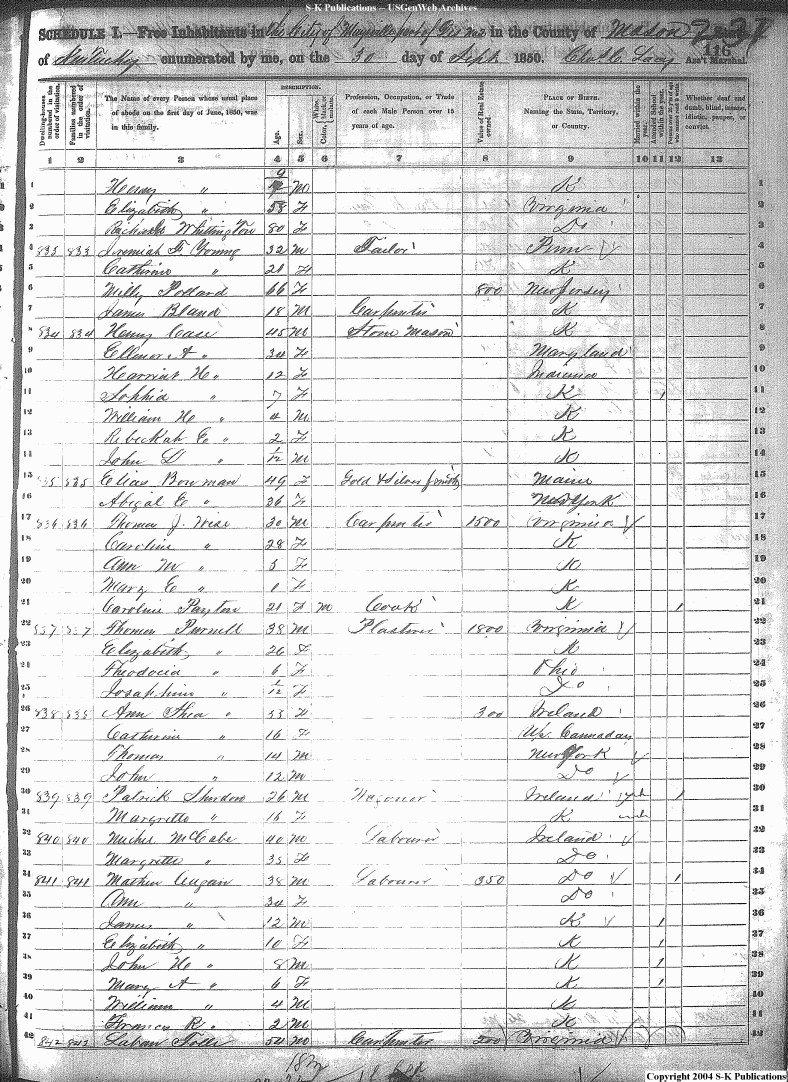 S-K Publications -- USGenWeb Archives
SCHEDULE I.—Free Inhabitants in the City of Maysville part of in the County of Mason
of Kentucky enumerated by me, on the 30 day of Sept 1850. Ass't Marshal.
116
Dwelling-houses numbered in the order of visitation.
Families numbered in the order of visitation.
The Name of every Person whose usual place of abode on the first day of June, 1850, was in this family.
DESCRIPTION.
Age.
Sex.
Color, White, black, or mulatto.
Profession, Occupation, or Trade of each Male Person over 15 years of age.
Value of Real Estate owned.
PLACE OF BIRTH. Naming the State, Territory, or Country.
Married within the year.
Attended School within the year.
Persons over 20 y'rs of age who cannot read & write.
Whether deaf and dumb, blind, insane, idiotic, pauper, or convict.
1 2 3 4 5 6 7 8 9 10 11 12 13
1 Henry " 9 M K 1
2 Elizabeth " 58 F Virginia 2
3 Whittington 80 F Do 3
4 833 833 Jeremiah F. Young 32 M Tailor Penn 4
5 Catherine " 21 F K 5
6 Milly Pollard 66 F 800 New Jersey 6
7 James Bland 18 M Carpenter K 7
8 834 834 Henry Case 45 M Stone Mason K 8
9 Ellenor A " 34 F Maryland 9
10 Harriet H " 12 F Indiana 10
11 Sophia " 7 F K 1 11
12 William H " 4 M K 12
13 Rebeckah E " 2 F K 13
14 John D " 1/12 M K 14
15 835 835 Elias Bowman 49 F Gold & Silver Smith Maine 15
16 Abigal E " 36 F New York 16
17 836 836 Thomas J. Wise 30 M Carpenter 1500 Virginia 17
18 Caroline " 28 F K 18
19 Ann M " 5 F K 19
20 Mary E " 1 F K 20
21 Caroline Payton 21 F M Cook K 1 21
22 837 837 Thomas Purnell 38 M Plasterer 1800 Virginia 22
23 Elizabeth " 26 F K 23
24 Theodocia " 6 F Ohio 24
25 Josaphine " /12 F Do 25
26 838 838 Ann Shea " 33 F 300 Ireland 26
27 Catherine " 16 F Up. Cannaday 27
28 Thomas " 14 M New York 28
29 John " 12 M Do 29
30 839 839 Patrick 26 M Ireland 1 30
31 Margrette " 16 F K 31
32 840 840 Michel McCabe 40 M Labourer Ireland 32
33 Margrette " 35 F Do 33
34 841 841 38 M Labourer 350 Do 1 34
35 Ann " 34 F Do 35
36 James " 12 M K 1 36
37 Elizabeth " 10 F K 1 37
38 John H " 8 M K 1 38
39 Mary A " 6 F K 1 39
40 William " 4 M K 40
41 Francis R " 2 M K 41
42 842 842 Laban 54 M Carpenter 200 Virginia 42
Copyright 2004 S-K Publications